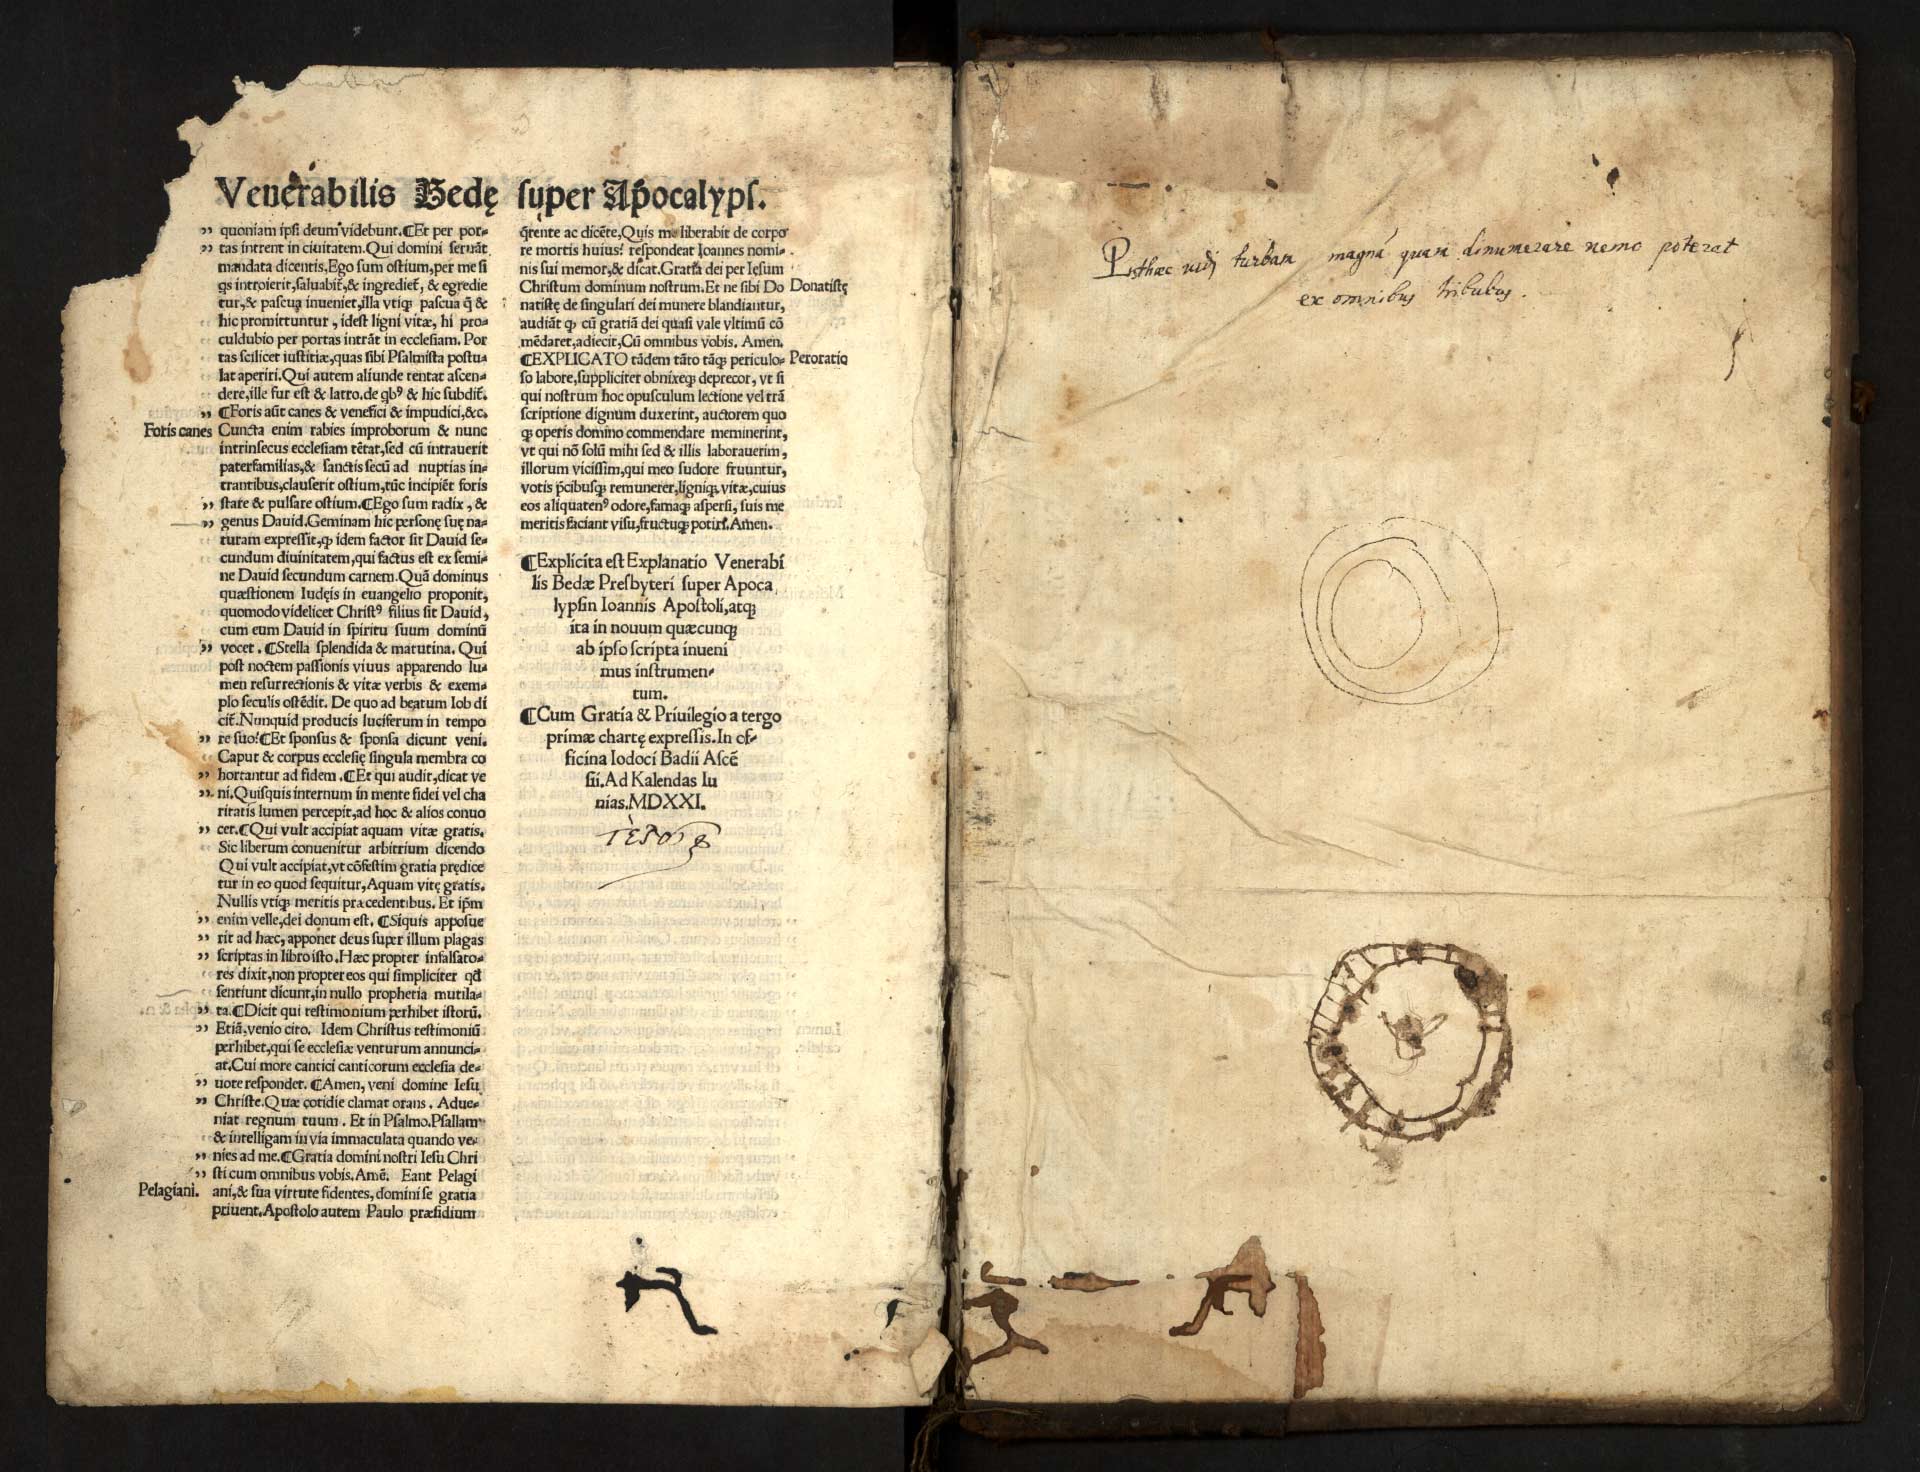 Venerabilis Bedę super Apocalyps.
quoniam ipsi deum videbunt. ¶Et per por-
tas intrent in ciuitatem. Qui domini seruāt
mandata dicentis, Ego sum ostium, per me si
qs introierit, saluabit̄, & ingrediet̄, & egredie
tur, & pascua inueniet, illa vtiqꝫ pascua q̄ &
hic promittuntur, idest ligni vitæ, hi pro-
culdubio per portas intrāt in ecclesiam. Por
tas scilicet iustitiæ, quas sibi Psalmista postu-
lat aperiri. Qui autem aliunde tentat ascen-
dere, ille fur est & latro. de qbꝰ & hic subdit̄.
¶Foris aūt canes & venefici & impudici, &c.
Foris canes
Cuncta enim rabies improborum & nunc
intrinsecus ecclesiam tētat, sed cū intrauerit
paterfamilias, & sanctis secū ad nuptias in-
trantibus, clauserit ostium, tūc incipiēt foris
stare & pulsare ostium. ¶Ego sum radix, &
genus Dauid. Geminam hic personę suę na-
turam expressit, ꝙ idem factor sit Dauid se-
cundum diuinitatem, qui factus est ex semi-
ne Dauid secundum carnem. Quā dominus
quæstionem Iudęis in euangelio proponit,
quomodo videlicet Christꝰ filius sit Dauid,
cum eum Dauid in spiritu suum dominū
vocet. ¶Stella splendida & matutina. Qui
post noctem passionis viuus apparendo lu-
men resurrectionis & vitæ verbis & exem-
plo seculis ostēdit. De quo ad beatum Iob di
cit̄. Nunquid producis luciferum in tempo
re suo? ¶Et sponsus & sponsa dicunt veni.
Caput & corpus ecclesię singula membra co
hortantur ad fidem. ¶Et qui audit, dicat ve
ni. Quisquis internum in mente fidei vel cha
ritatis lumen percepit, ad hoc & alios conuo
cet. ¶Qui vult accipiat aquam vitæ gratis.
Sic liberum conuenitur arbitrium dicendo
Qui vult accipiat, vt cōfestim gratia prędice
tur in eo quod sequitur, Aquam vitę gratis.
Nullis vtiqꝫ meritis præcedentibus. Et ipm̄
enim velle, dei donum est. ¶Siquis apposue
rit ad hæc, apponet deus super illum plagas
scriptas in libro isto. Hæc propter insalsato-
res dixit, non propter eos qui simpliciter qđ
sentiunt dicunt, in nullo prophetia mutila-
ta. ¶Dicit qui testimonium perhibet istorū.
Etiā, venio cito. Idem Christus testimoniū
perhibet, qui se ecclesiæ venturum annunci-
at. Cui more cantici canticorum ecclesia de-
uote respondet. ¶Amen, veni domine Iesu
Christe. Quæ cotidie clamat orans. Adue-
niat regnum tuum. Et in Psalmo. Psallam
& intelligam in via immaculata quando ve-
nies ad me. ¶Gratia domini nostri Iesu Chri
sti cum omnibus vobis. Amē. Eant Pelagi
Pelagiani.
ani, & sua virtute fidentes, domini se gratia
priuent. Apostolo autem Paulo præsidium
q̄rente ac dicēte, Quis me liberabit de corpo
re mortis huius? respondeat Ioannes nomi-
nis sui memor, & dicat. Gratia dei per Iesum
Christum dominum nostrum. Et ne sibi Do
Donatistę
natistę de singulari dei munere blandiantur,
audiāt ꝙ cū gratiā dei quasi vale vltimū cō
mēdaret, adiecit, Cū omnibus vobis. Amen.
¶EXPLICATO tādem tāto tāqꝫ periculo-
Peroratio
so labore, suppliciter obnixeqꝫ deprecor, vt si
qui nostrum hoc opusculum lectione vel trā
scriptione dignum duxerint, auctorem quo
qꝫ operis domino commendare meminerint,
vt qui nō solū mihi sed & illis laborauerim,
illorum vicissim, qui meo sudore fruuntur,
votis p̄cibusqꝫ remunerer, ligniqꝫ vitæ, cuius
eos aliquatenꝰ odore, famaqꝫ aspersi, suis me
meritis faciant visu, fructuqꝫ potiri. Amen.
¶Explicita est Explanatio Venerabi
lis Bedæ Presbyteri super Apoca
lypsin Ioannis Apostoli, atqꝫ
ita in nouum quæcunqꝫ
ab ipso scripta inueni
mus instrumen-
tum.
¶Cum Gratia & Priuilegio a tergo
primæ chartę expressis. In of-
ficina Iodoci Badii Ascē
sii. Ad Kalendas Iu
nias. MDXXI.
Posthæc uidj turbam magnā quam dinumerare nemo poterat
ex omnibus tribubus.